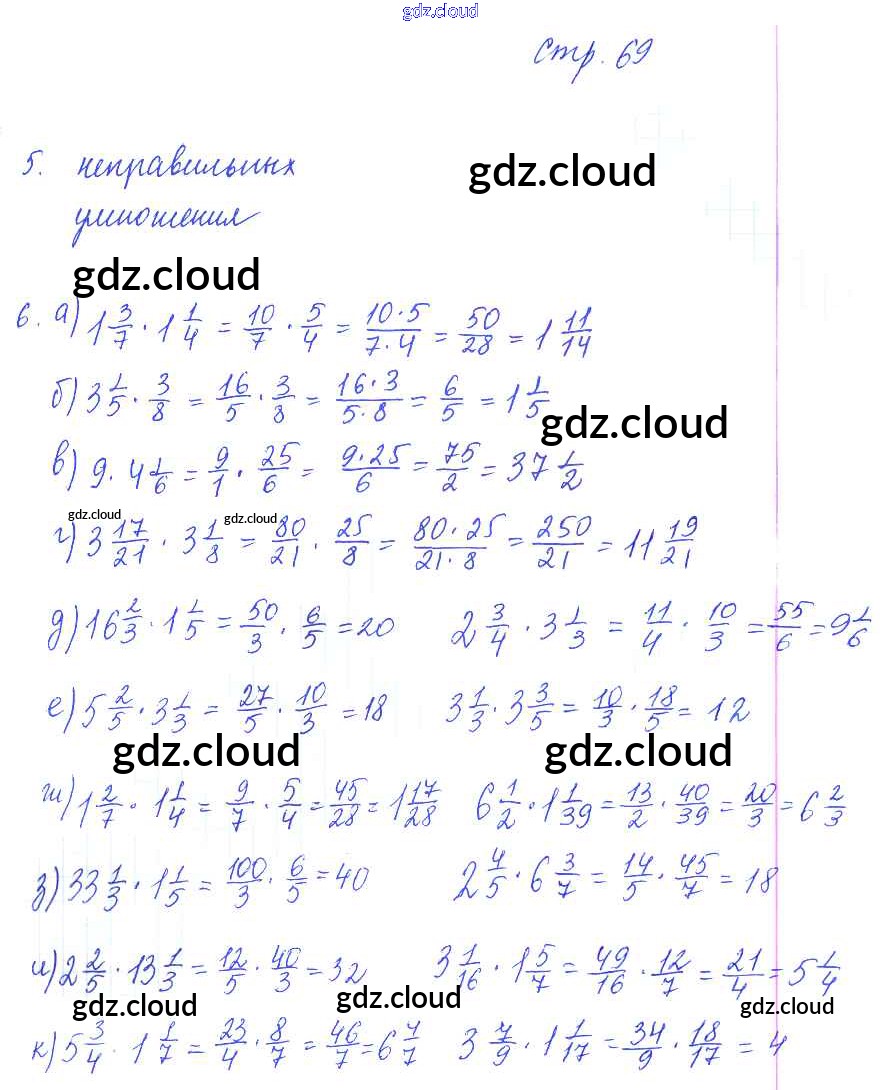 gdz.cloud
стр. 69
5. неправильных
gdz.cloud
умножения
gdz.cloud
6. а) 1 3/7 · 1 1/4 = 10/7 · 5/4 = 10·5/7·4 = 50/28 = 1 11/14
б) 3 1/5 · 3/8 = 16/5 · 3/8 = 16·3/5·8 = 6/5 = 1 1/5
gdz.cloud
в) 9 · 4 1/6 = 9/1 · 25/6 = 9·25/6 = 75/2 = 37 1/2
gdz.cloud gdz.cloud
г) 3 17/21 · 3 1/8 = 80/21 · 25/8 = 80·25/21·8 = 250/21 = 11 19/21
д) 16 2/3 · 1 1/5 = 50/3 · 6/5 = 20 2 3/4 · 3 1/3 = 11/4 · 10/3 = 55/6 = 9 1/6
е) 5 2/5 · 3 1/3 = 27/5 · 10/3 = 18 3 1/3 · 3 3/5 = 10/3 · 18/5 = 12
gdz.cloud gdz.cloud
ж) 1 2/7 · 1 1/4 = 9/7 · 5/4 = 45/28 = 1 17/28 6 1/2 · 1 1/39 = 13/2 · 40/39 = 20/3 = 6 2/3
з) 33 1/3 · 1 1/5 = 100/3 · 6/5 = 40 2 4/5 · 6 3/7 = 14/5 · 45/7 = 18
и) 2 2/5 · 13 1/3 = 12/5 · 40/3 = 32 3 1/16 · 1 5/7 = 49/16 · 12/7 = 21/4 = 5 1/4
gdz.cloud gdz.cloud gdz.cloud
к) 5 3/4 · 1 1/7 = 23/4 · 8/7 = 46/7 = 6 4/7 3 7/9 · 1 1/17 = 34/9 · 18/17 = 4